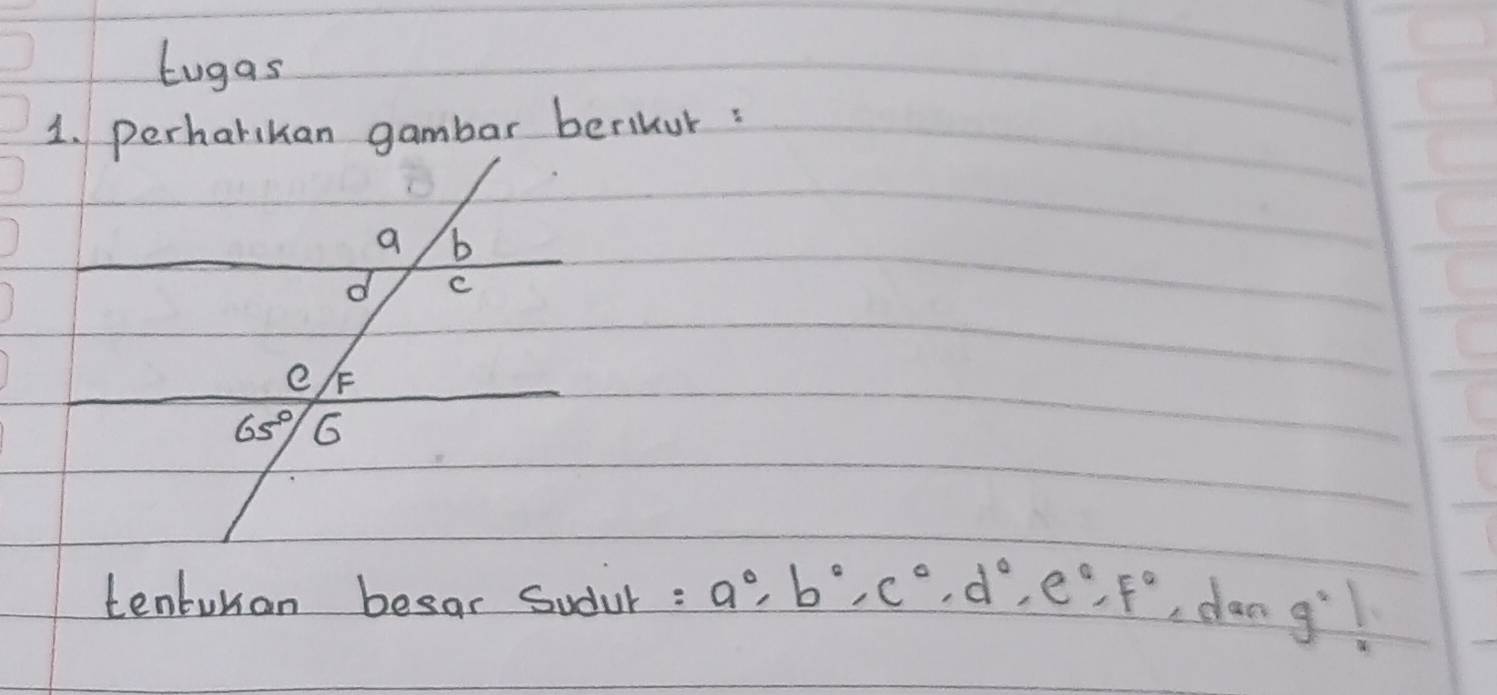 tugas
1. perhatikan gambar berikut :
a b
d c
e F
65° G
tentukan besar sudut : a°, b°, c°, d°, e°, F°, dan g° !